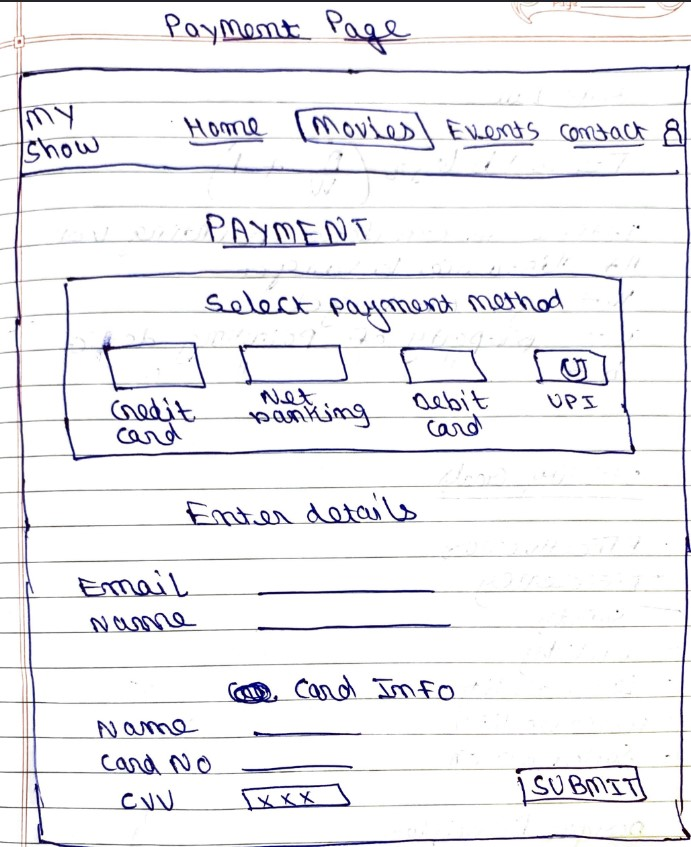 Payment Page
My Show Home Movies Events Contact
PAYMENT
Select payment method
U
Credit card Net banking Debit card UPI
Enter details
Email
Name
Card Info
Name
Card No
CVV XXX SUBMIT